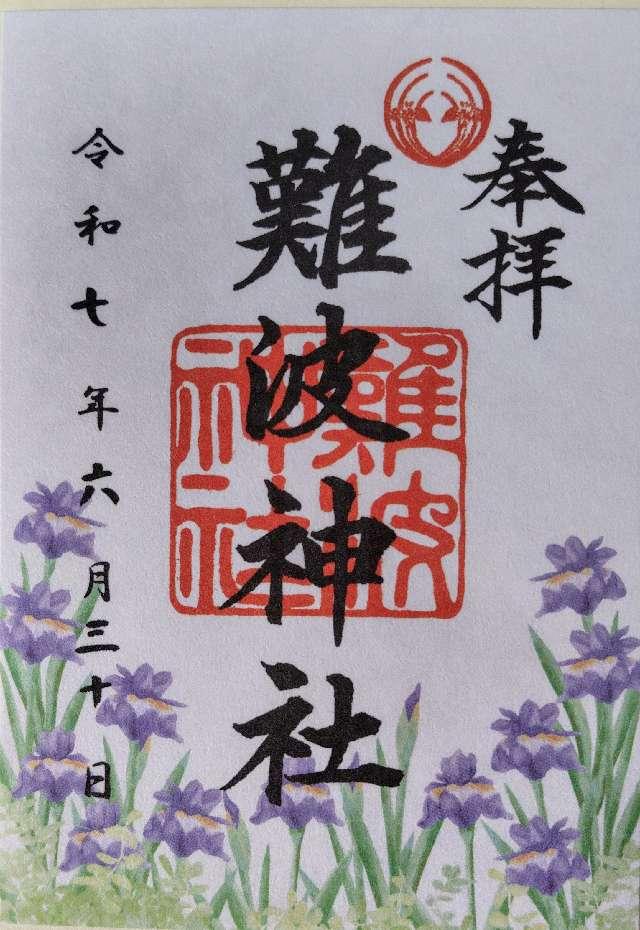 奉拝
難波神社
難波神社
令和七年六月三十日